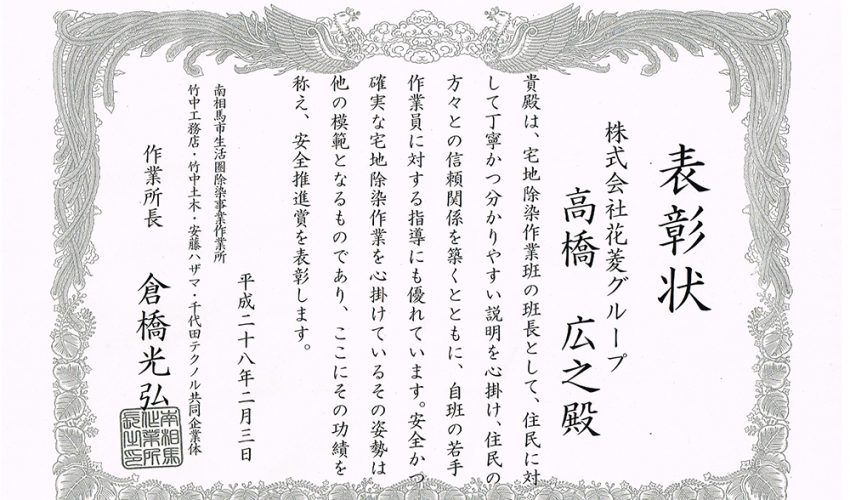 表彰状
株式会社花菱グループ
高橋 広之殿
貴殿は、宅地除染作業班の班長として、住民に対
して丁寧かつ分かりやすい説明を心掛け、住民の
方々との信頼関係を築くとともに、自班の若手
作業員に対する指導にも優れています。安全かつ
確実な宅地除染作業を心掛けているその姿勢は
他の模範となるものであり、ここにその功績を
称え、安全推進賞を表彰します。
平成二十八年二月三日
南相馬市生活圏除染事業作業所
竹中工務店・竹中土木・安藤ハザマ・千代田テクノル共同企業体
作業所長 倉橋光弘
南相馬
作業所
長之印